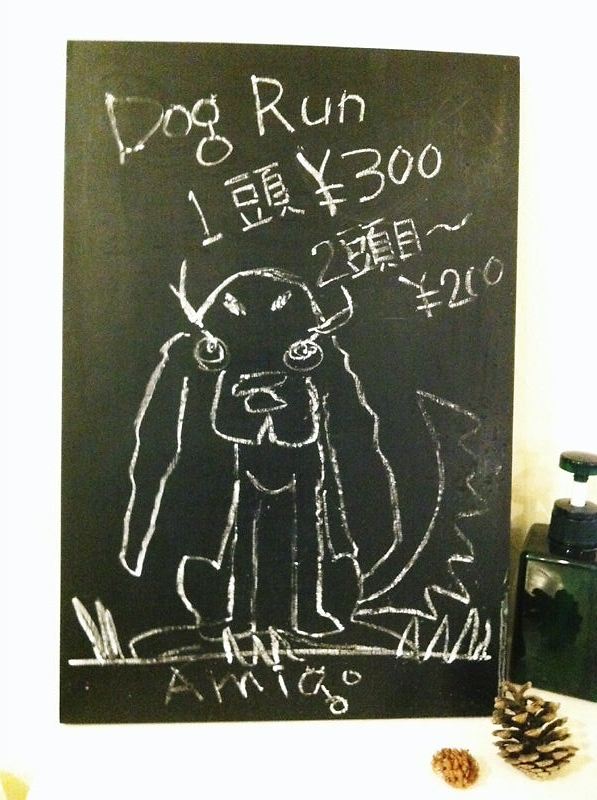 Dog Run
1頭¥300
2頭目〜
¥200
Amigo